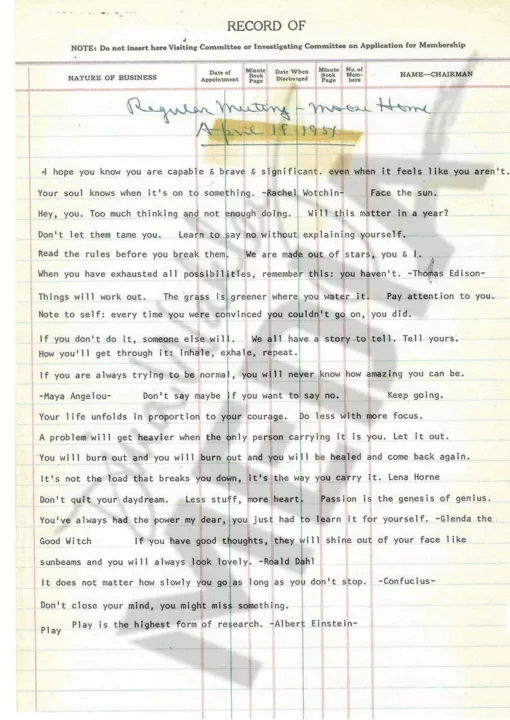 RECORD OF
NOTE: Do not insert here Visiting Committee or Investigating Committee on Application for Membership
NATURE OF BUSINESS Date of Appointment Minute Book Page Date When Discharged Minute Book Page No. of Mem-bers NAME—CHAIRMAN
Regular Meeting - Moose Home
April 18 1951
I hope you know you are capable & brave & significant. even when it feels like you aren't.
Your soul knows when it's on to something. -Rachel Wotchin- Face the sun.
Hey, you. Too much thinking and not enough doing. Will this matter in a year?
Don't let them tame you. Learn to say no without explaining yourself.
Read the rules before you break them. We are made out of stars, you & I.
When you have exhausted all possibilities, remember this: you haven't. -Thomas Edison-
Things will work out. The grass is greener where you water it. Pay attention to you.
Note to self: every time you were convinced you couldn't go on, you did.
If you don't do it, someone else will. We all have a story to tell. Tell yours.
How you'll get through it: inhale, exhale, repeat.
If you are always trying to be normal, you will never know how amazing you can be.
-Maya Angelou- Don't say maybe if you want to say no. Keep going.
Your life unfolds in proportion to your courage. Do less with more focus.
A problem will get heavier when the only person carrying it is you. Let it out.
You will burn out and you will burn out and you will be healed and come back again.
It's not the load that breaks you down, it's the way you carry it. Lena Horne
Don't quit your daydream. Less stuff, more heart. Passion is the genesis of genius.
You've always had the power my dear, you just had to learn it for yourself. -Glenda the
Good Witch If you have good thoughts, they will shine out of your face like
sunbeams and you will always look lovely. -Roald Dahl
It does not matter how slowly you go as long as you don't stop. -Confucius-
Don't close your mind, you might miss something.
Play is the highest form of research. -Albert Einstein-
Play
MEDIA